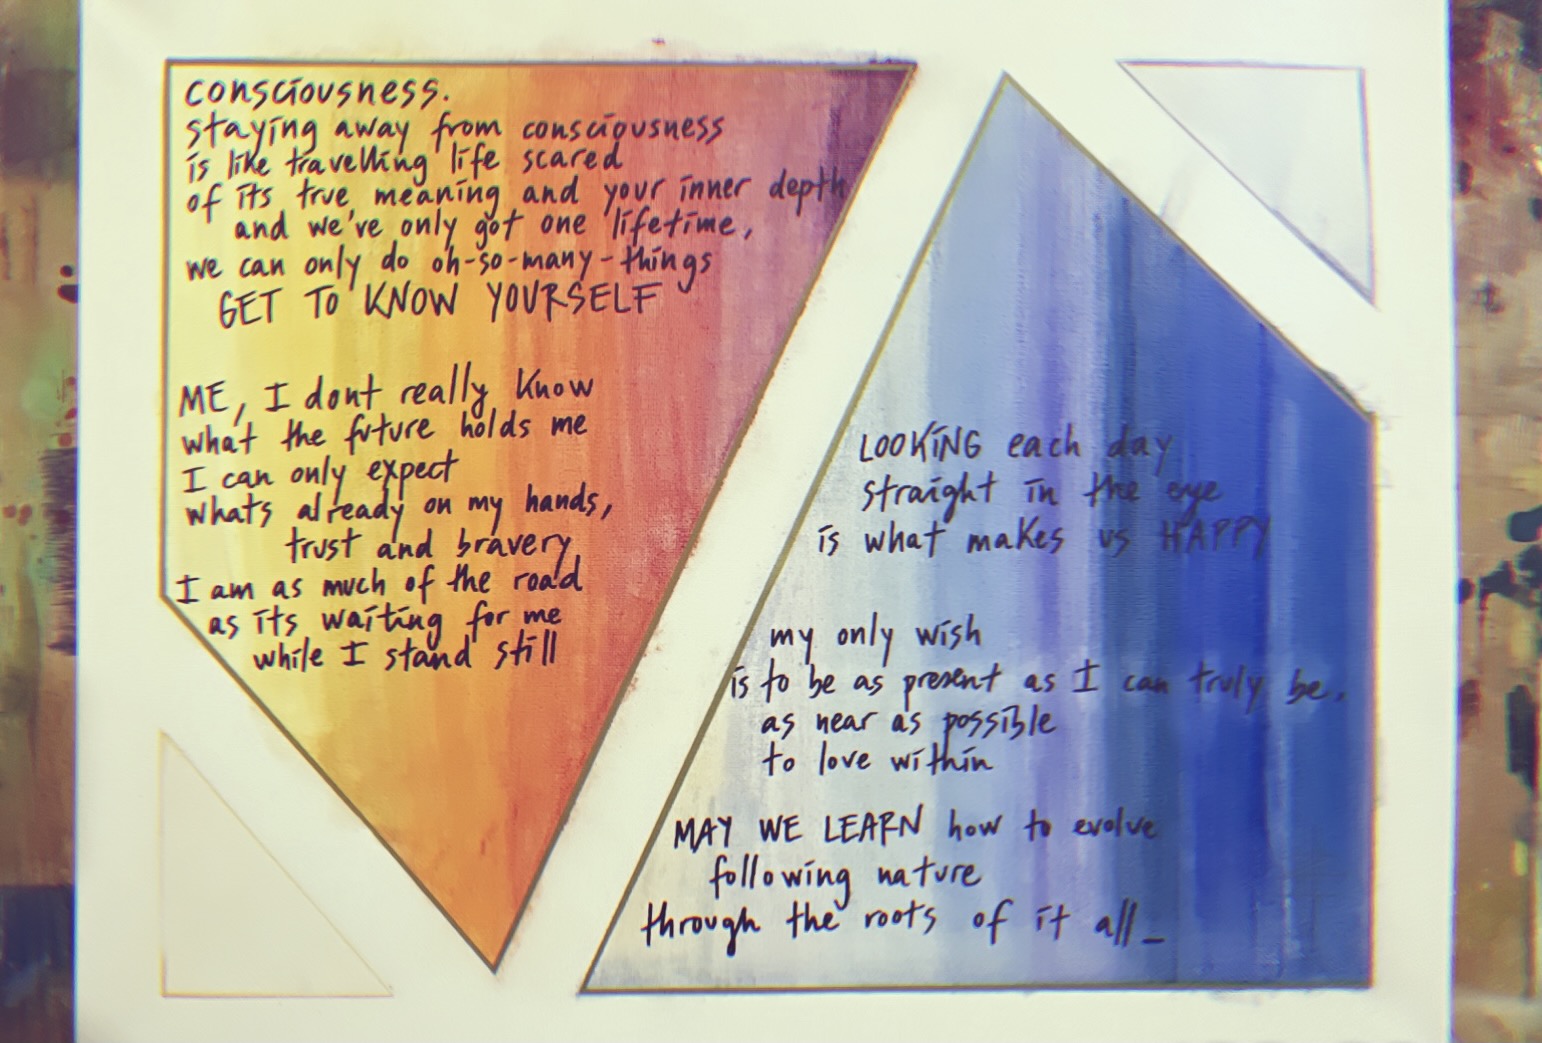 consciousness.
staying away from consciousness
is like travelling life scared
of its true meaning and your inner depth
and we've only got one lifetime,
we can only do oh-so-many-things
GET TO KNOW YOURSELF
ME, I dont really know
what the future holds me
I can only expect
whats already on my hands,
trust and bravery
I am as much of the road
as its waiting for me
while I stand still
LOOKING each day
straight in the eye
is what makes us HAPPY
my only wish
is to be as present as I can truly be.
as near as possible
to love within
MAY WE LEARN how to evolve
following nature
through the roots of it all_